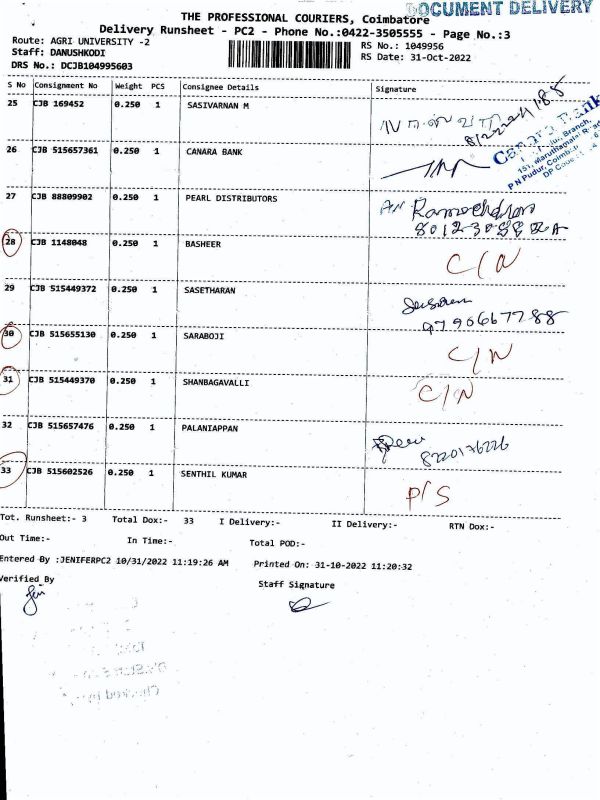 DOCUMENT DELIVERY
THE PROFESSIONAL COURIERS, Coimbatore
Delivery Runsheet - PC2 - Phone No.:0422-3505555 - Page No.:3
Route: AGRI UNIVERSITY -2
RS No.: 1049956
Staff: DANUSHKODI
RS Date: 31-Oct-2022
DRS No.: DCJB104995603
S No Consignment No Weight PCS Consignee Details Signature
25 CJB 169452 0.250 1 SASIVARNAN M
26 CJB 515657361 0.250 1 CANARA BANK
Canara Bank
Branch,
151, Maruthamalai Road
P N Pudur, Coimb
DP Code
27 CJB 88809902 0.250 1 PEARL DISTRIBUTORS
28 CJB 1148048 0.250 1 BASHEER C/N
29 CJB 515449372 0.250 1 SASETHARAN
9790667788
30 CJB 515655130 0.250 1 SARABOJI C/N
31 CJB 515449370 0.250 1 SHANBAGAVALLI C/N
32 CJB 515657476 0.250 1 PALANIAPPAN
8220176226
33 CJB 515602526 0.250 1 SENTHIL KUMAR P/S
Tot. Runsheet:- 3 Total Dox:- 33 I Delivery:- II Delivery:- RTN Dox:-
Out Time:- In Time:- Total POD:-
Entered By :JENIFERPC2 10/31/2022 11:19:26 AM Printed On: 31-10-2022 11:20:32
Verified By Staff Signature